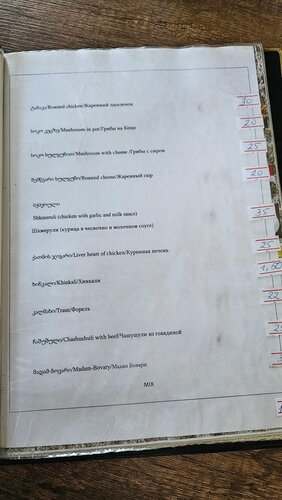 ტაბაკა/Roasted chicken/Жаренный цыпленок 30
სოკო კეცზე/Mushroom in pot/Грибы на Кеци 20
სოკო სულგუნით/Mushroom with cheese /Грибы с сыром 25
შემწვარი სულგუნი/Roasted cheese/Жаренный сыр 20
შქმერული
Shkmeruli (chicken with garlic and milk sauce) 35
Шкмерули (курица в чесночно и молочном соусе)
ქათმის ჯიგარი/Liver heart of chicken/Куринная печень 25
ხინკალი/Khinkali/Хинкали 1,50
კალმახი/Traut/Форель 22
ჩაშუშული/Chashushuli with beef/Чашушули из говядиной
მადამ-ბოვარი/Madam-Bovary/Мадам Бовари
MIX